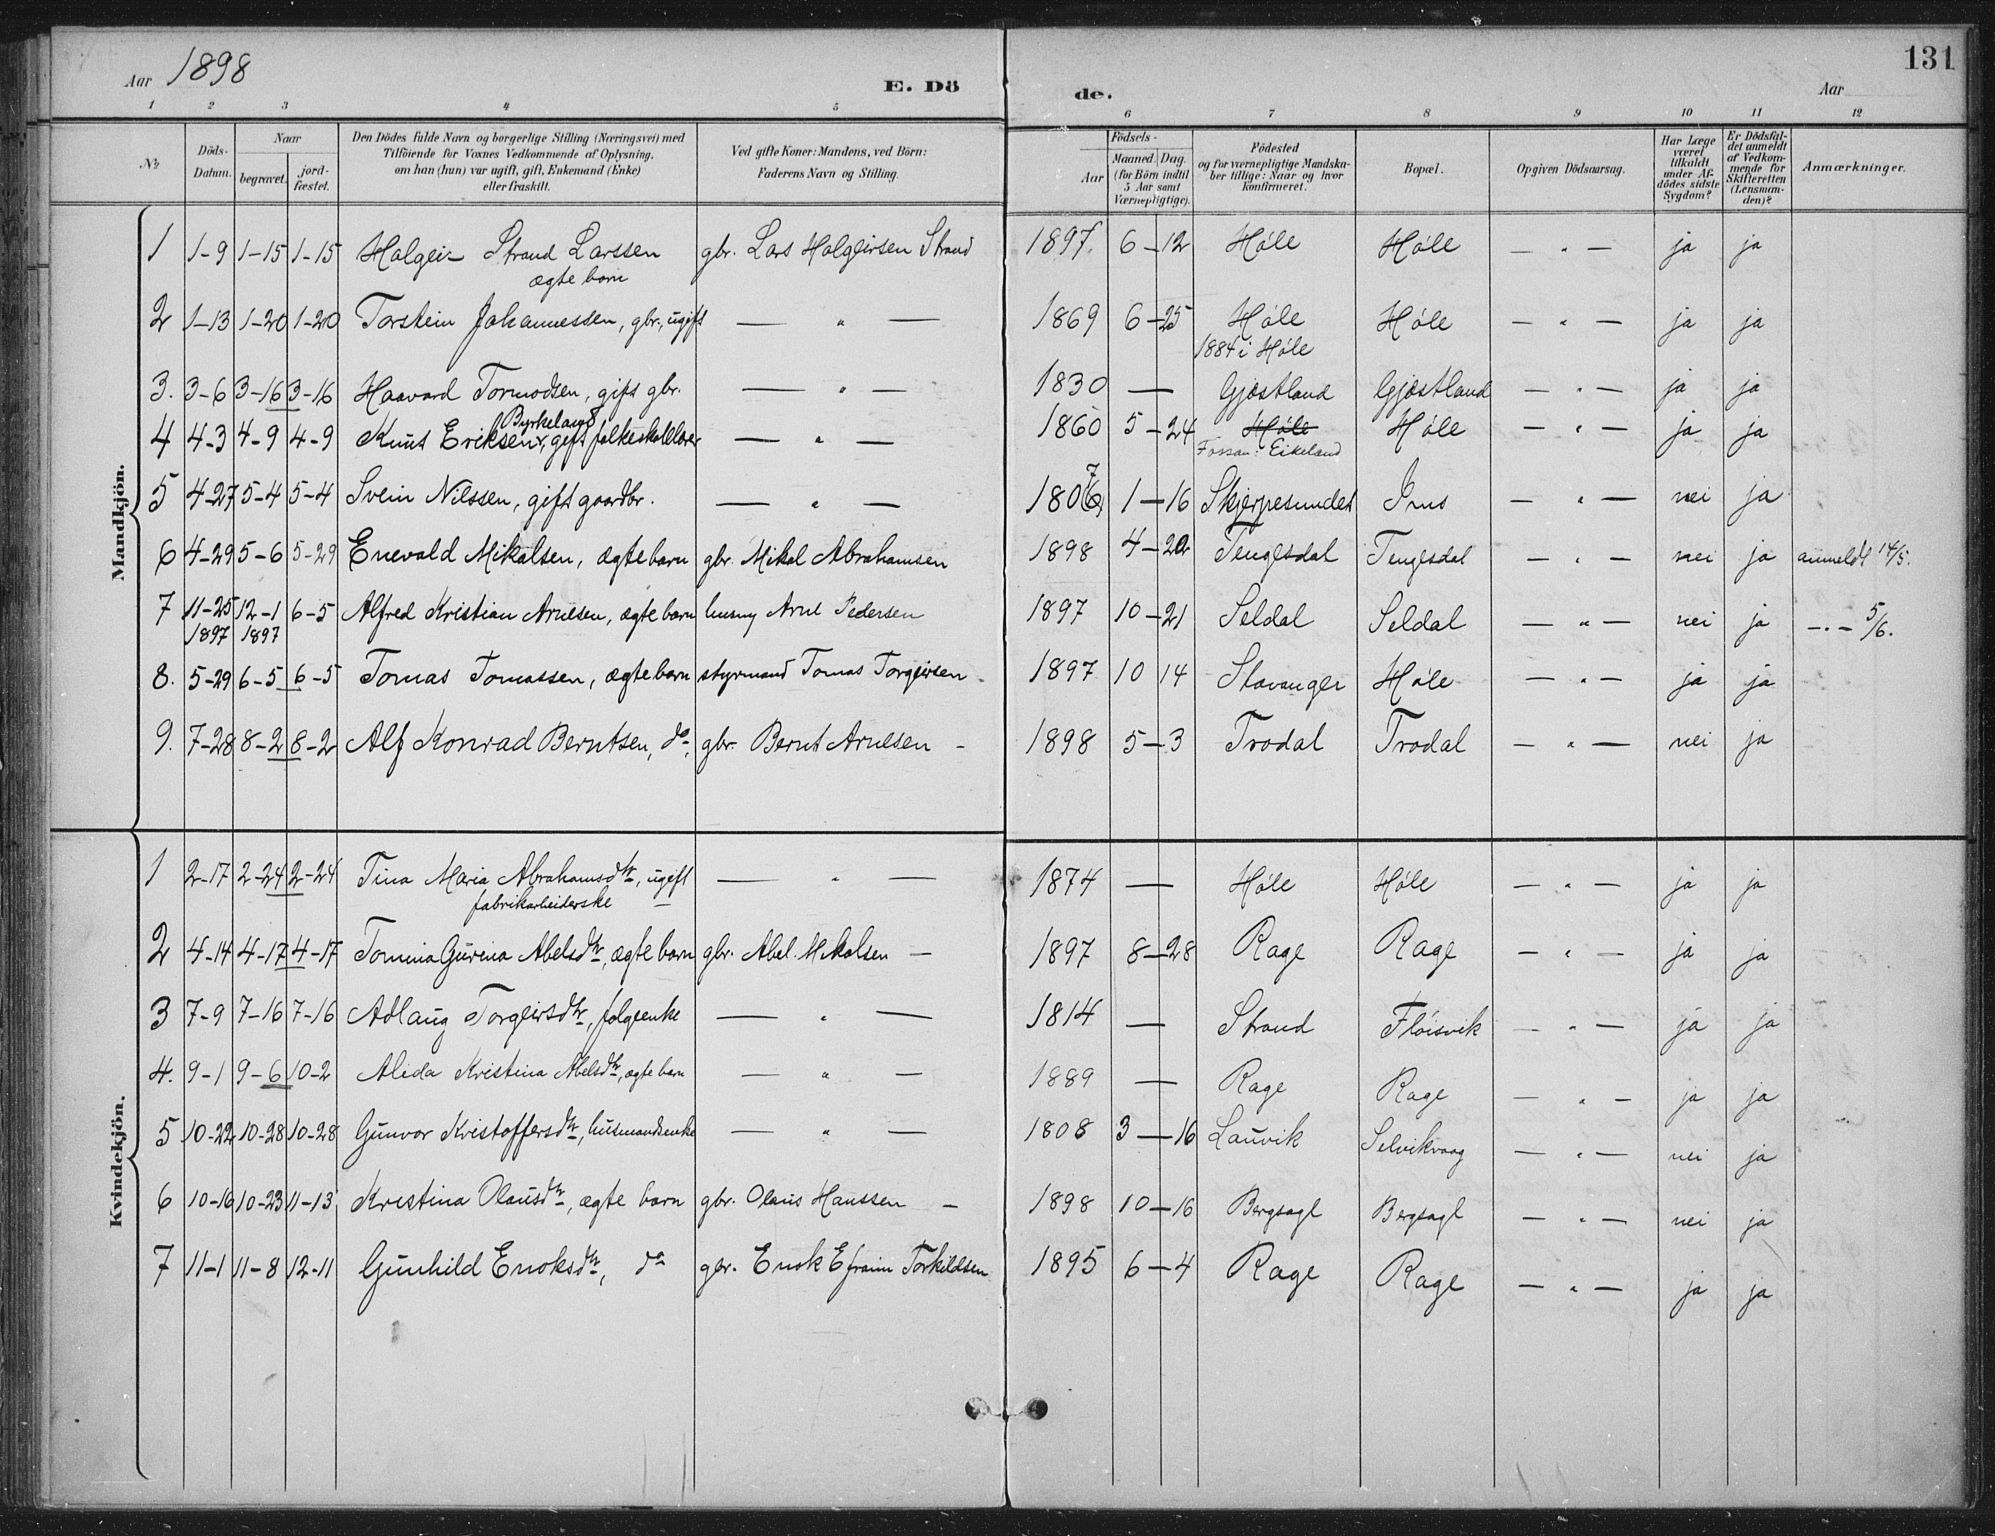 Aar 1898 E. Dö de. Aar 131
1 2 3 4 5 6 7 8 9 10 11 12
№ Döds-Datum. Naar begravet. jord-fæstet. Den Dödes fulde Navn og borgerlige Stilling (Næringsvei) med Tilföiende for Voxnes Vedkommende af Oplysning, om han (hun) var ugift, gift, Enkemand (Enke) eller fraskilt. Ved gifte Koner: Mandens, ved Börn: Faderens Navn og Stilling. Födsels- Aar Maaned. Dag. (for Börn indtil 5 Aar samt Værnepligtige). Födested og for værnepligtige Mandska-ber tillige: Naar og hvor konfirmeret. Bopæl. Opgiven Dödsaarsag. Har Læge været tilkaldt under Af-dödes sidste Sygdom? Er Dödsfal-det anmeldt af Vedkom-mende for Skifteretten (Lensman-den)? Anmærkninger.
Mandkjön.
1 1-9 1-15 1-15 Holgeir Strand Larssen gbr. Lars Holgeirsen Strand 1897. 6-12 Høle Høle — " — ja ja
ægte barn
2 1-13 1-20 1-20 Torstein Johannessen, gbr., ugift — " — 1869 6-25 Høle Høle — " — ja ja
1884 i Høle
3. 3-6 3-16 3-16 Haavard Tormodsen, gift gbr. — " — 1830 — Gjøstland Gjøstland — " — ja ja
Byrkeland
4 4-3 4-9 4-9 Knut Eriksen, gift folkeskolelærer — " — 1860 5-24 Høle Høle — " — ja ja
Fossan: Eikeland
7
5 4-27 5-4 5-4 Svein Nilssen, gift gaardbr. — " — 1806 1-16 Skjerpesundet Ims — " — nei ja
6 4-29 5-6 5-29 Enevald Mikalsen, ægte barn gbr. Mikal Abrahamsen 1898 4-20 Tengesdal Tengesdal — " — nei ja anmeldt 14/5.
7 11-25 12-1 6-5 Alfred Kristian Arnesen, ægte barn husmg Arne Pedersen 1897 10-21 Seldal Seldal — " — nei ja — " — 5/6.
1897 1897
8. 5-29 6-5 6-5 Tomas Tomassen, ægte barn styrmand Tomas Torgeirsen 1897 10 14 Stavanger Høle — " — ja ja
9. 7-28 8-2 8-2 Alf Konrad Berntsen, do, gbr. Bernt Arnesen - 1898 5-3 Trodal Trodal — " — nei ja
Kvindekjön.
1 2-17 2-24 2-24 Tina Maria Abrahamsdtr, ugift — " — 1874 — Høle Høle — " — ja ja
fabrikarbeiderske
2 4-14 4-17 4-17 Tomina Gurina Abelsdtr, ægte barn gbr. Abel Mikalsen — 1897 8-28 Rage Rage — " — ja ja
3 7-9 7-16 7-16 Adlaug Torgeirsdtr, folgeenke — " — 1814 — Strand Fløisvik — " — ja ja
4. 9-1 9-6 10-2 Alida Kristina Abelsdtr, ægte barn — " — 1889 — Rage Rage — " — ja ja
5 10-22 10-28 10-28 Gunvor Kristoffersdtr, husmandsenke — " — 1808 3-16 Lauvik Selvikvaag — " — nei ja
6 10-16 10-23 11-13 Kristina Olausdtr, ægte barn gbr. Olaus Hanssen — 1898 10-16 Bergsagl Bergsagl — " — nei ja
7 11-1 11-8 12-11 Gunhild Enoksdtr, do gbr. Enok Efraim Torkildsen 1895 6-4 Rage Rage — " — ja ja